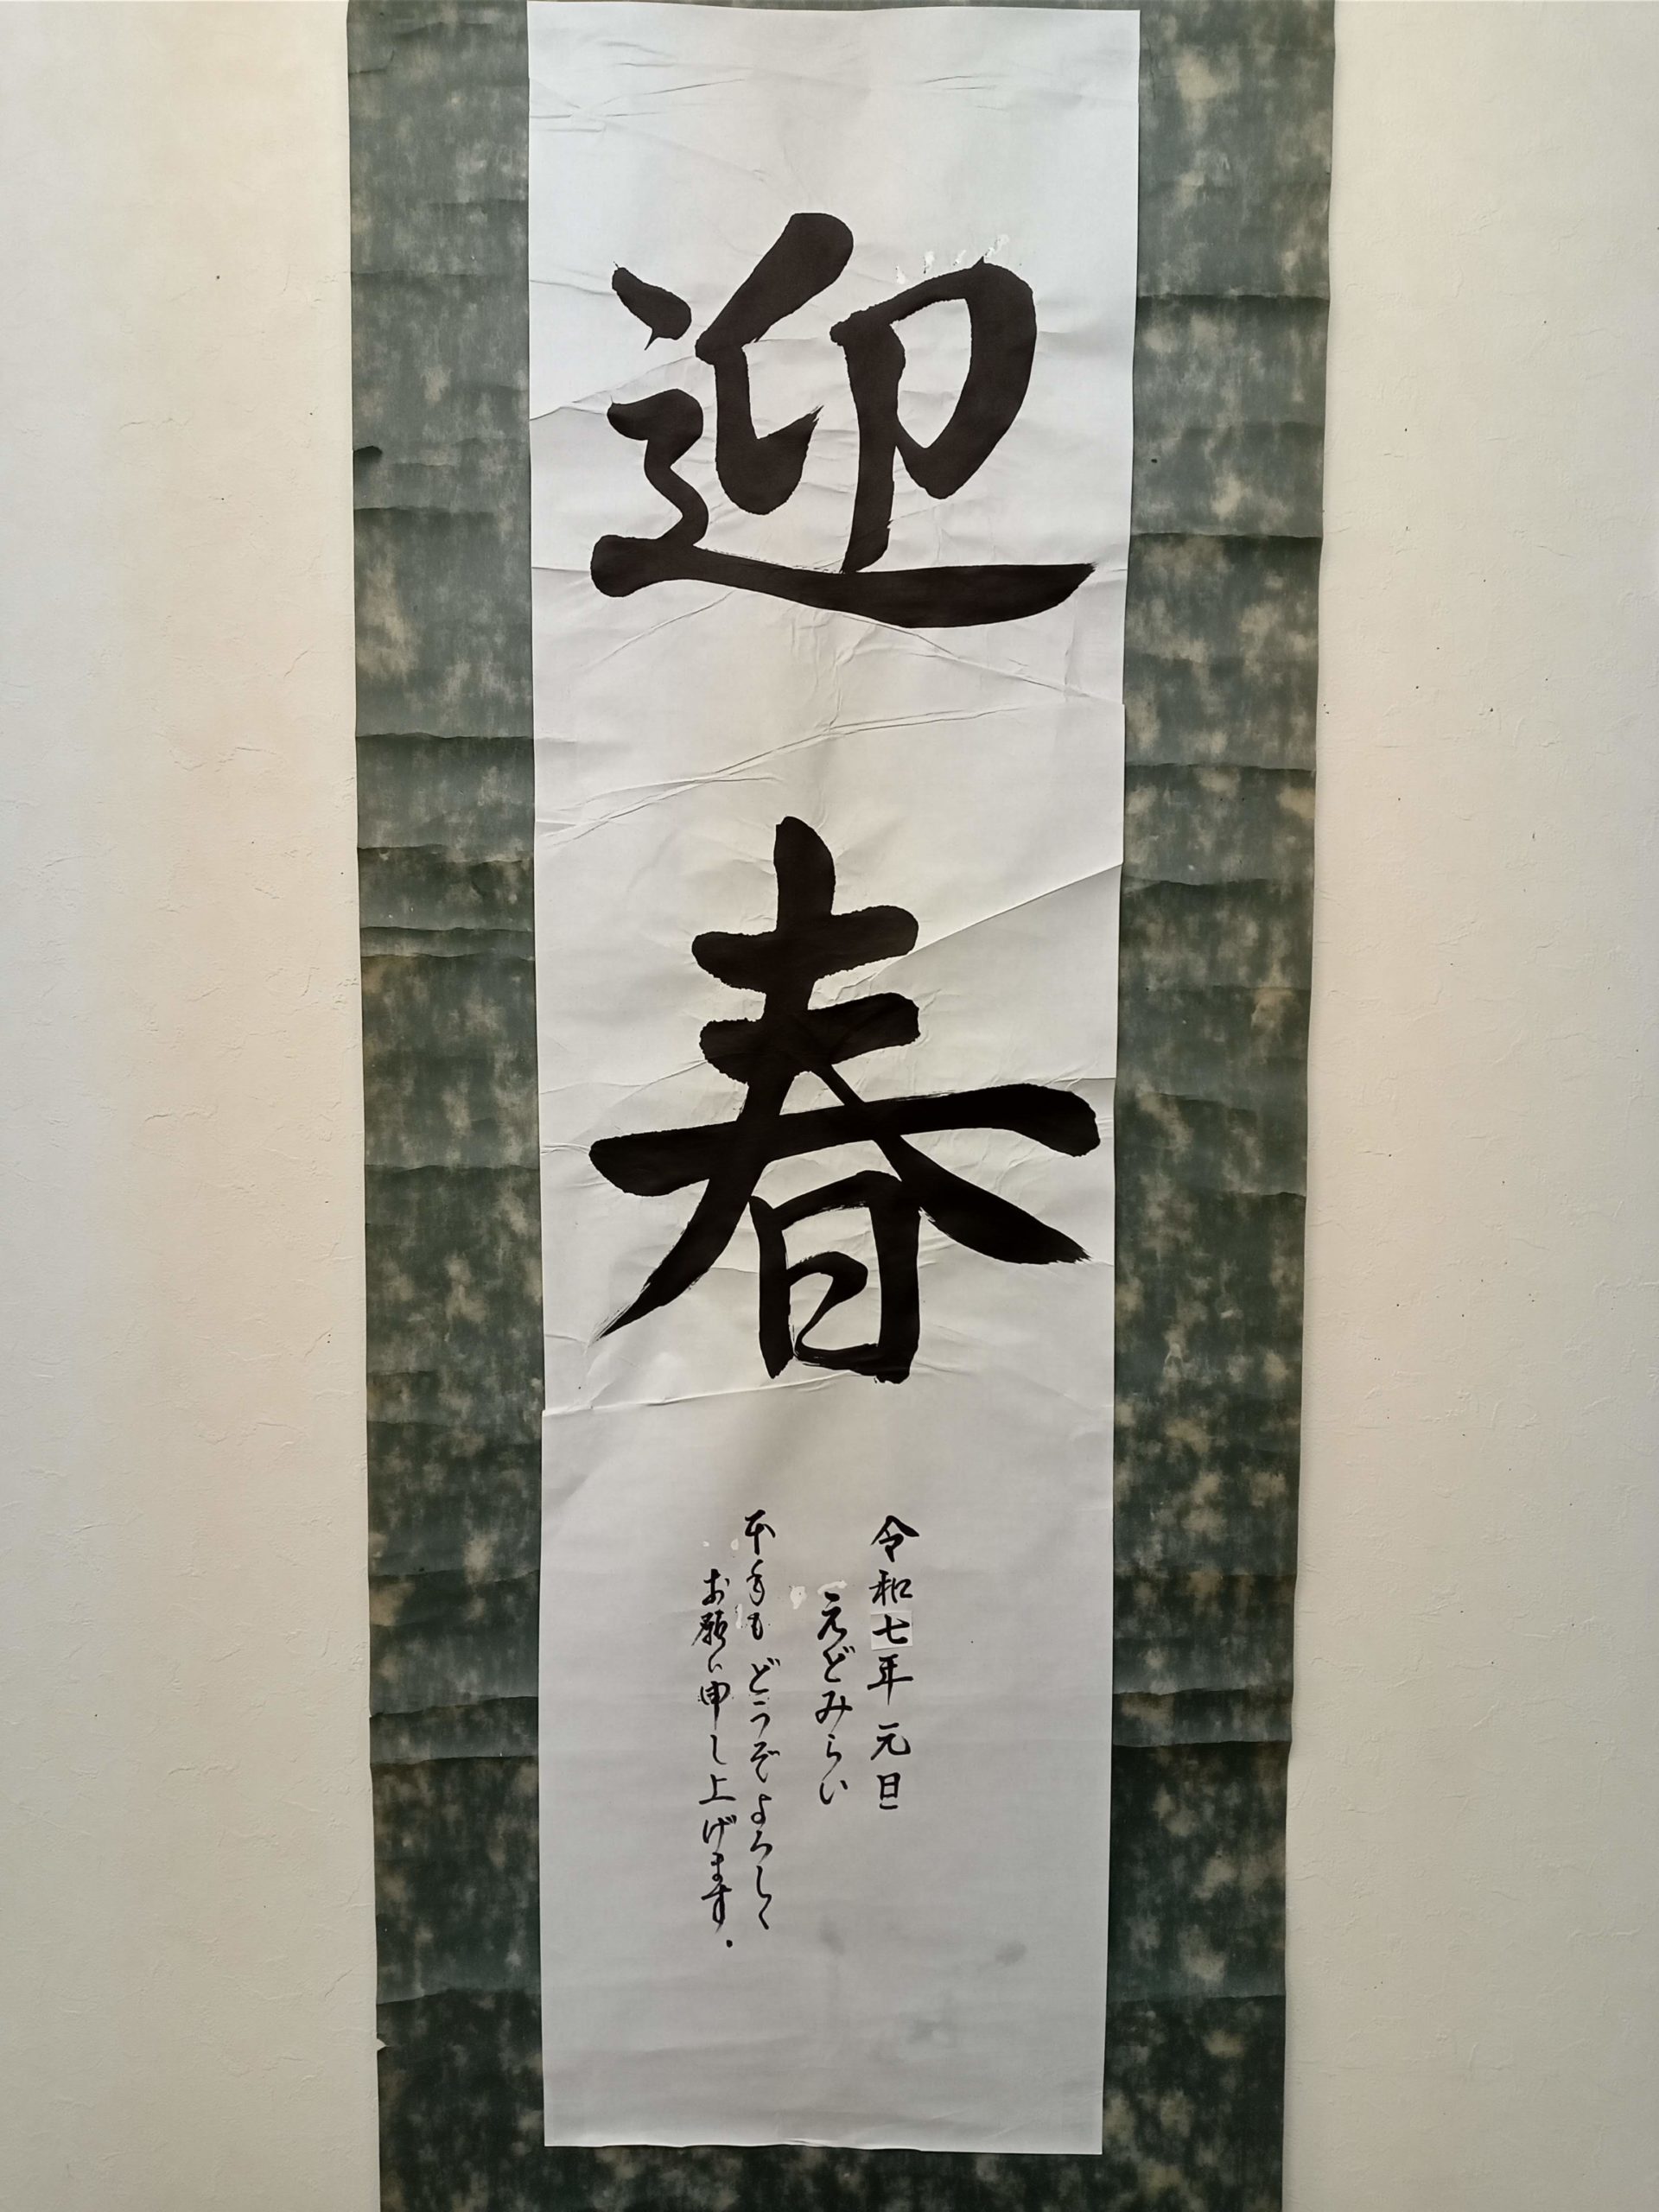 迎春
令和七年 元旦
えどみらい
本年も どうぞよろしく
お願い申し上げます.